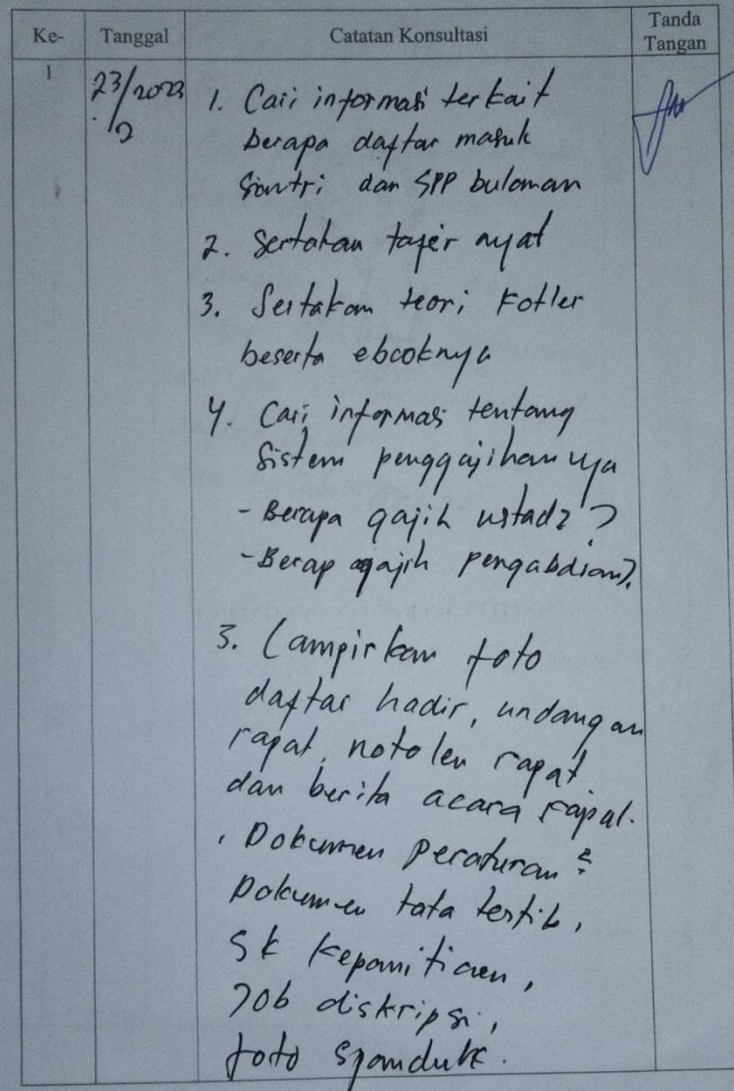 Ke- Tanggal Catatan Konsultasi Tanda Tangan
1 23/2023
2
1. Cari informasi terkait
berapa daftar masuk
Santri dan SPP bulanan
2. Sertakan tafsir ayat
3. Sertakan teori Kotler
beserta ebooknya
4. Cari informasi tentang
Sistem penggajihannya
- Berapa gajih ustadz?
- Berap gajih pengabdian?
5. Lampirkan foto
daftar hadir, undangan
rapat, notolen rapat
dan berita acara rapat.
, Dokumen peraturan²
Dokumen tata tertib,
SK Kepanitiaan,
Job diskripsi,
foto spanduk.